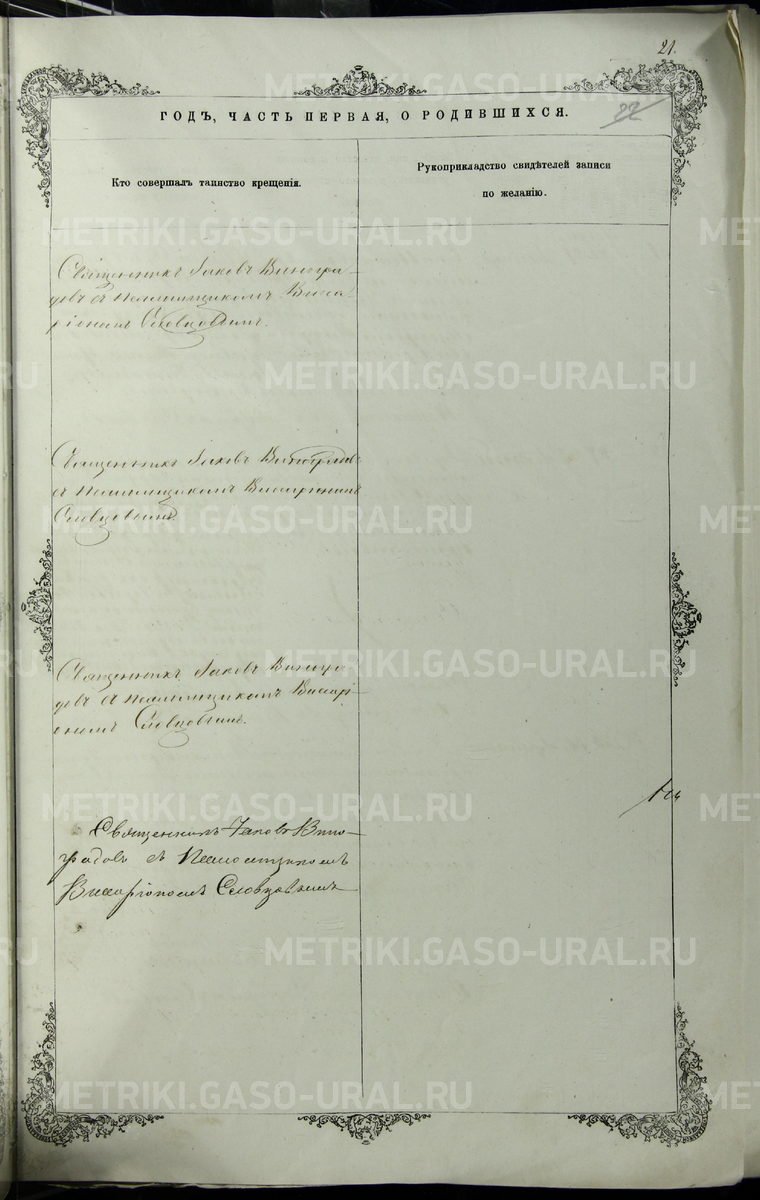 21.
22
ГОДЪ, ЧАСТЬ ПЕРВАЯ, О РОДИВШИХСЯ.
Кто совершалъ таинство крещенія.
Рукоприкладство свидѣтелей записи
по желанію.
Священникъ Іаковъ Виногра-
довъ съ Псаломщикомъ Висса-
ріономъ Словцовымъ.
Священникъ Іаковъ Виноградовъ
съ Псаломщикомъ Виссаріономъ
Словцовымъ.
Священникъ Іаковъ Виногра-
довъ съ Псаломщикомъ Виссарі-
ономъ Словцовымъ.
Священникъ Іаковъ Вино-
градовъ съ Псаломщикомъ
Виссаріономъ Словцовымъ
METRIKI.GASO-URAL.RU